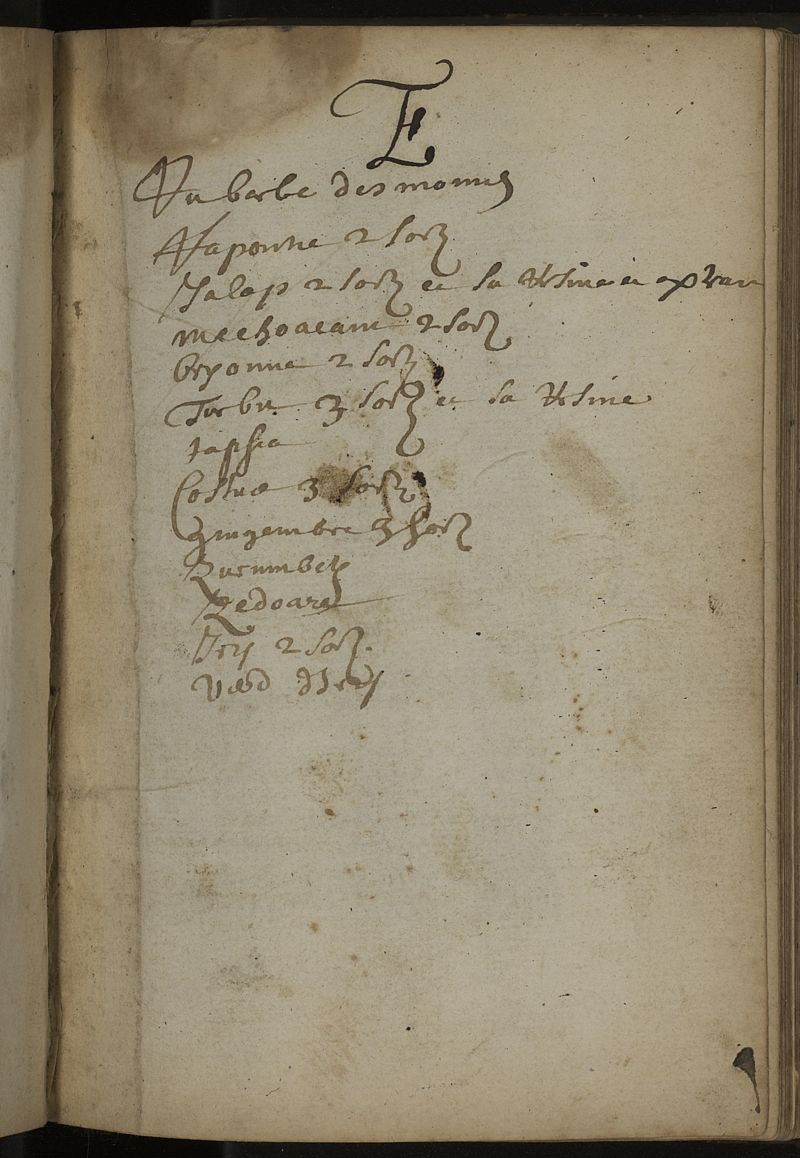 E
Rubarbe des moines
Raponne 2 sortz
Jalap 2 sortz et sa resine et extrait
mechoacam 2 sortz
bryonne 2 sortz
Turbit 3 sortz et sa resine
tapsia
Costus 3 sortz
gingembre 3 sortz
Zurumbetz
Zedoare
Iris 2 sortz
Verd d'Iris